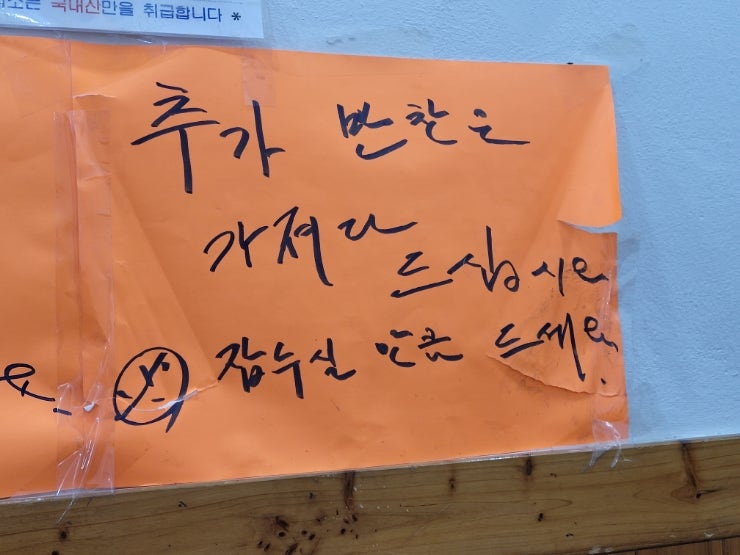 국내산만을 취급합니다 *
추가 반찬은
가져다
드십시요
※ 잡수실 만큼 드세요.
요.